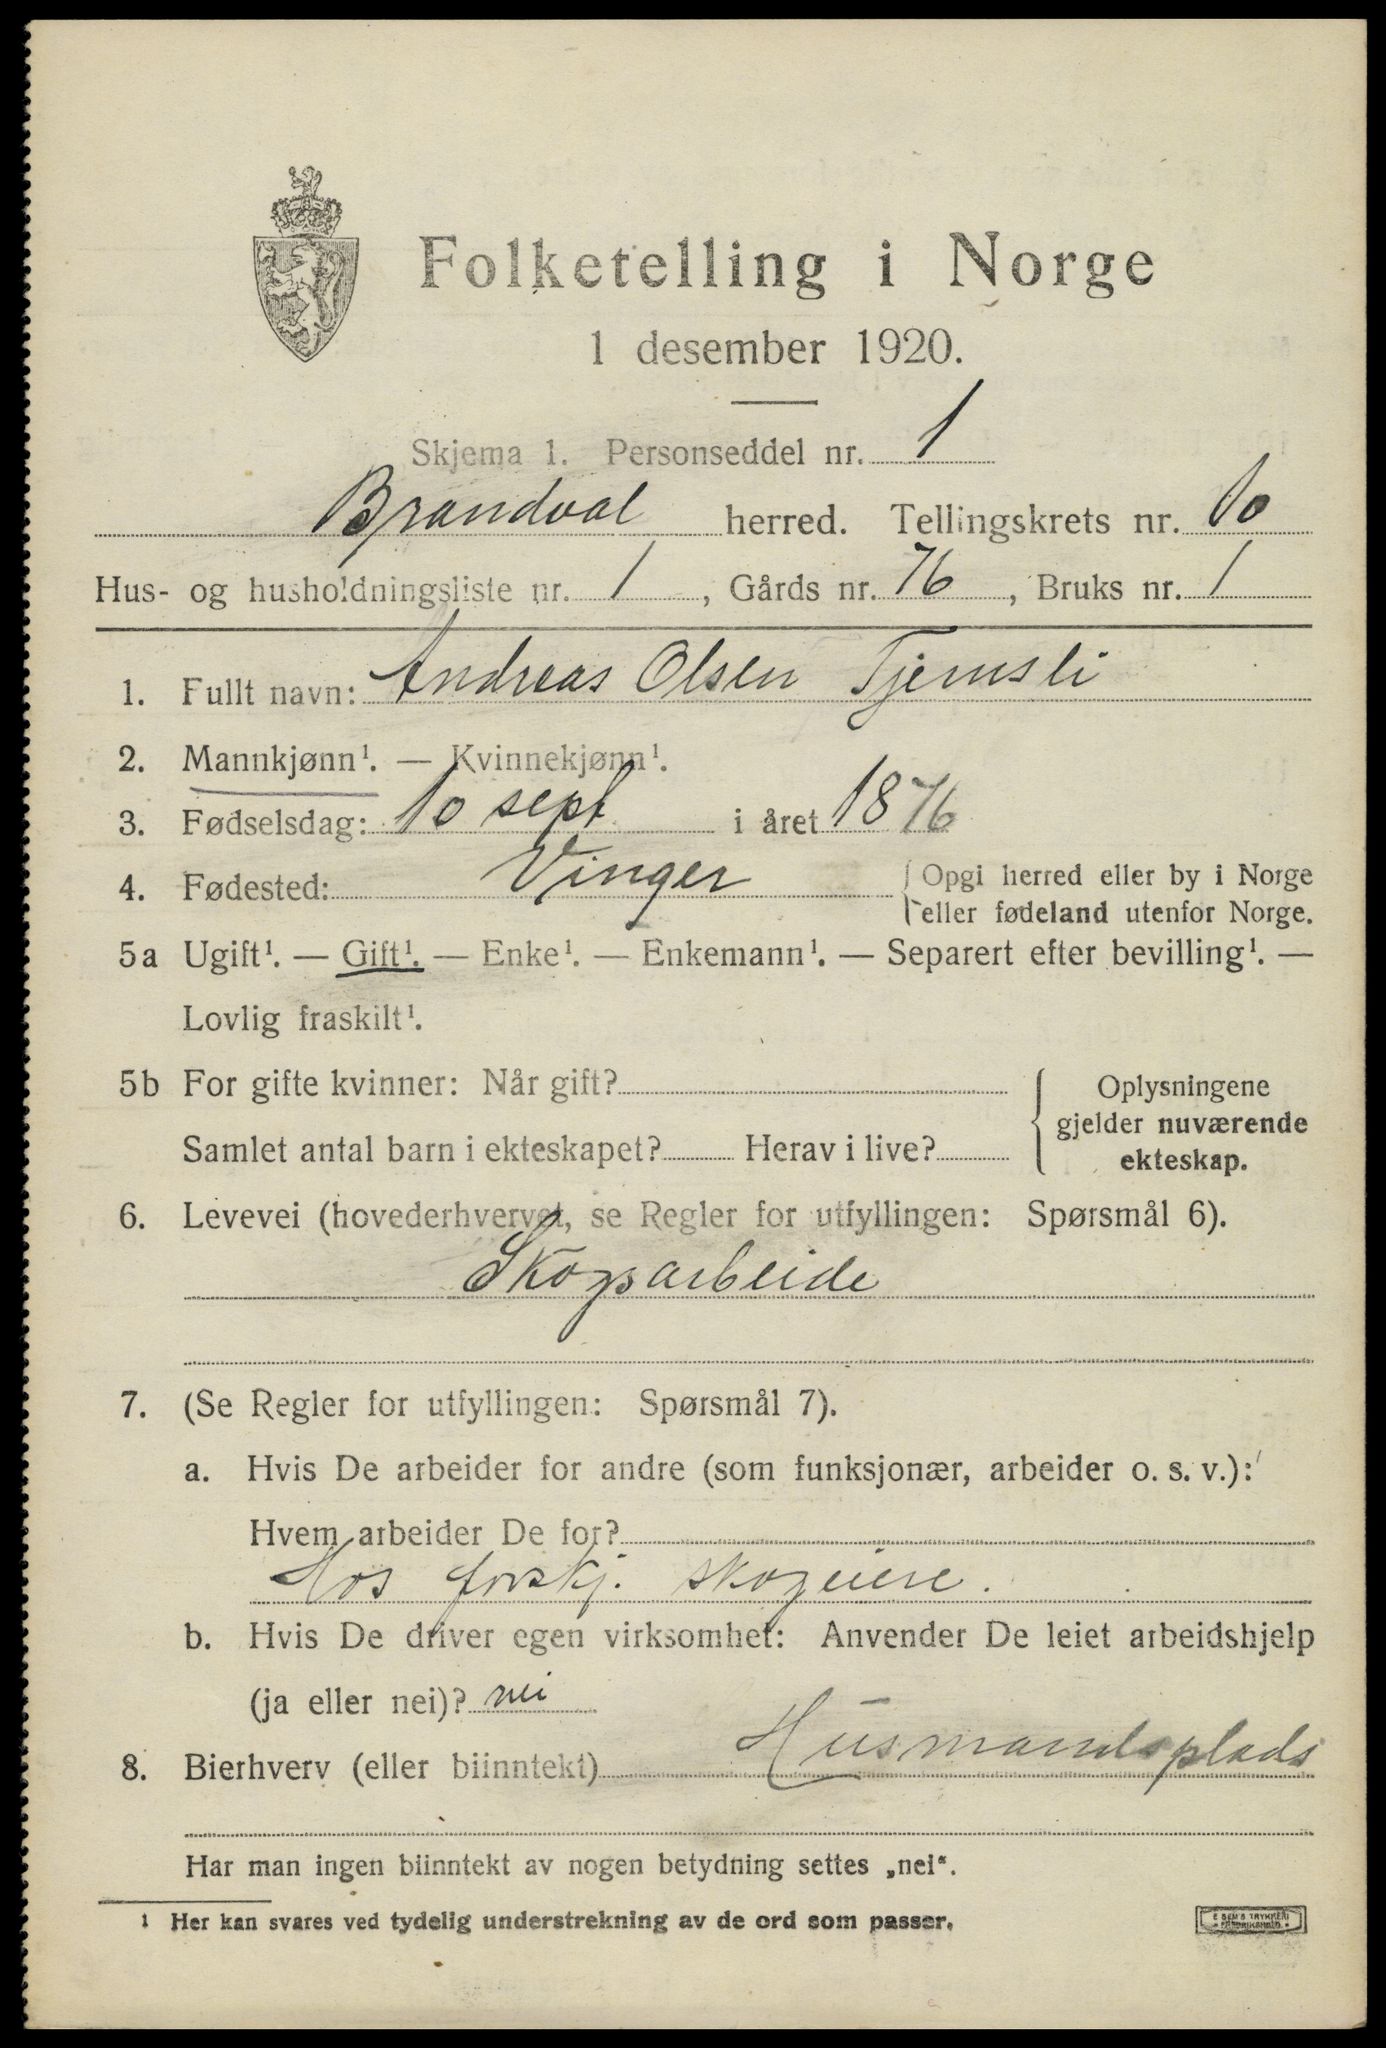 Folketelling i Norge
1 desember 1920.
Skjema 1. Personseddel nr. 1
Brandval herred. Tellingskrets nr. 10
Hus- og husholdningsliste nr. 1, Gårds nr. 76, Bruks nr. 1
1. Fullt navn: Andreas Olsen Tjernsli
2. Mannkjønn¹. — Kvinnekjønn¹.
3. Fødselsdag: 10 sept i året 1876
4. Fødested: Vinger Opgi herred eller by i Norge
eller fødeland utenfor Norge.
5a Ugift¹. — Gift¹. — Enke¹. — Enkemann¹. — Separert efter bevilling¹. —
Lovlig fraskilt¹.
5b For gifte kvinner: Når gift? Oplysningene
gjelder nuværende
Samlet antal barn i ekteskapet? Herav i live? ekteskap.
6. Levevei (hovederhvervet, se Regler for utfyllingen: Spørsmål 6).
Skogsarbeide
7. (Se Regler for utfyllingen: Spørsmål 7).
a. Hvis De arbeider for andre (som funksjonær, arbeider o. s. v.):
Hvem arbeider De for?
Hos forskj. skogeiere.
b. Hvis De driver egen virksomhet: Anvender De leiet arbeidshjelp
(ja eller nei)? nei
8. Bierhverv (eller biinntekt) Husmandsplads
Har man ingen biinntekt av nogen betydning settes „nei“.
1 Her kan svares ved tydelig understrekning av de ord som passer.
E SEM'S TRYKKERI
FREDRIKSHALD